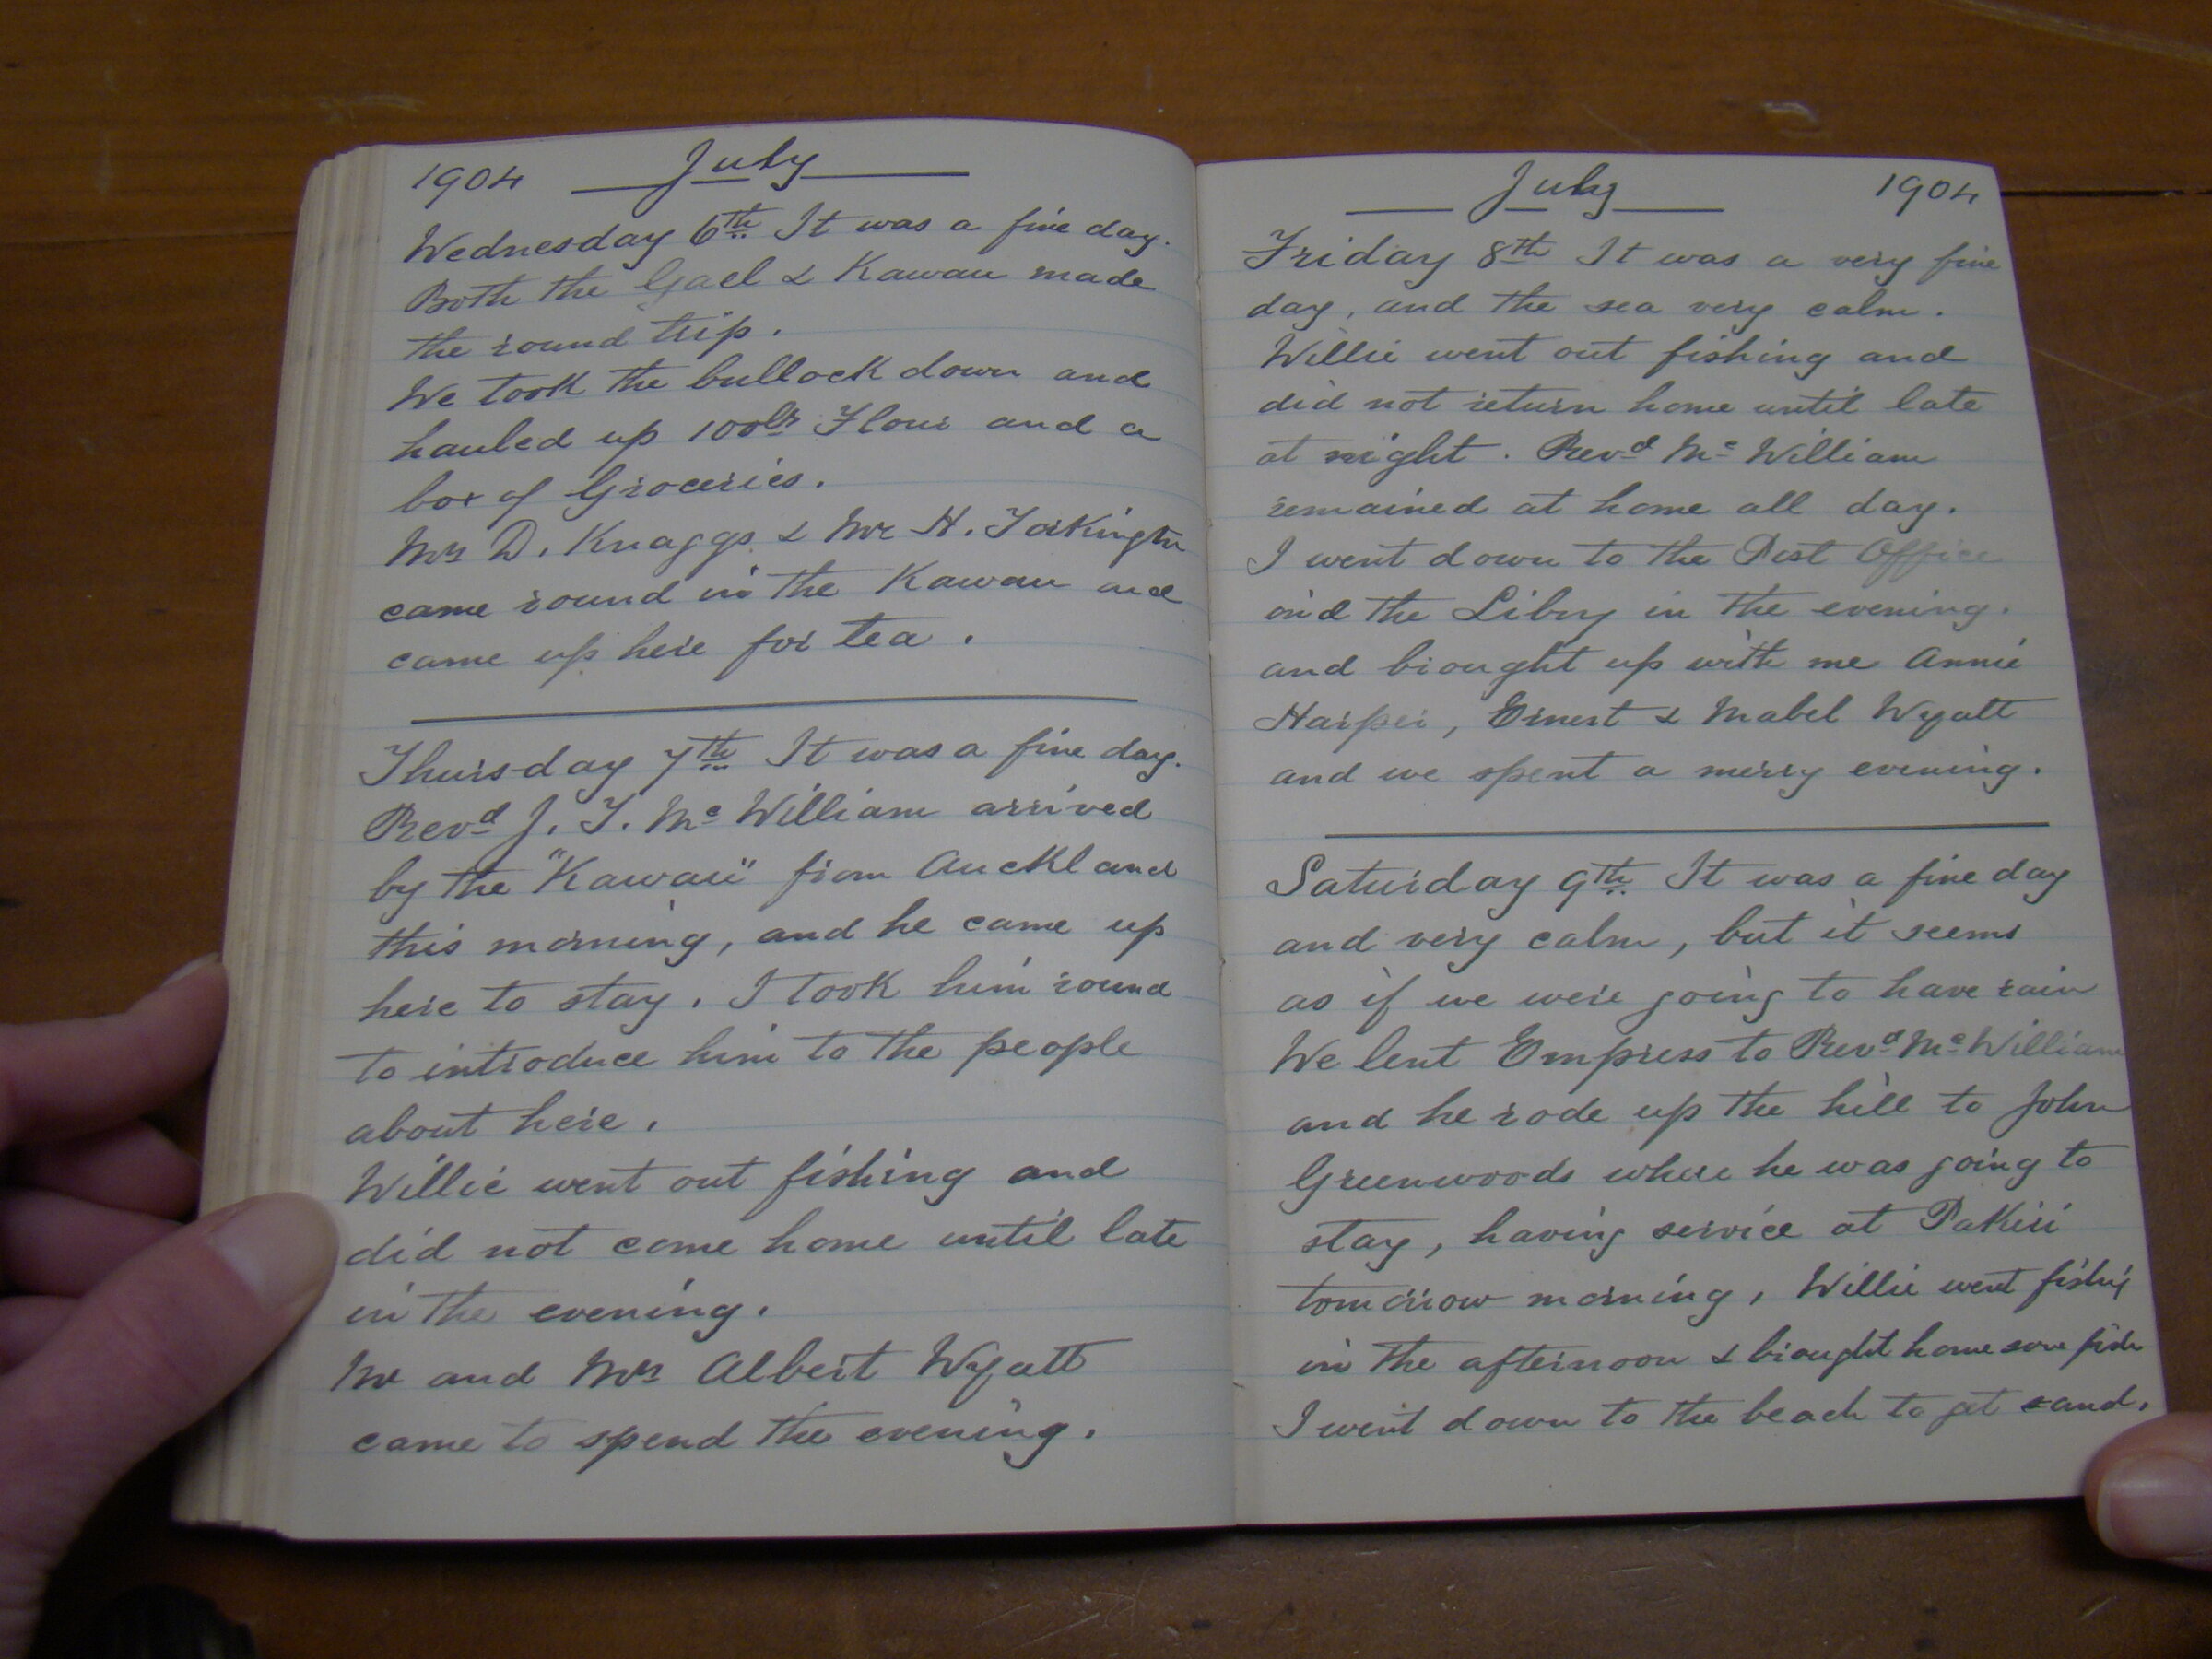 1904 July
Wednesday 6th It was a fine day.
Both the Gael & Kawau made
the round trip.
We took the bullock down and
hauled up 100lbs Flour and a
box of Groceries.
Mrs D. Knaggs & Mr H. Torkington
came round in the Kawau and
came up here for tea.
Thursday 7th It was a fine day.
Revd J. T. Mc William arrived
by the "Kawau" from Auckland
this morning, and he came up
here to stay. I took him round
to introduce him to the people
about here.
Willie went out fishing and
did not come home until late
in the evening.
Mr and Mrs Albert Wyatt
came to spend the evening.
July 1904
Friday 8th It was a very fine
day, and the sea very calm.
Willie went out fishing and
did not return home until late
at night. Revd Mc William
remained at home all day.
I went down to the Post Office
and the Libry in the evening.
and brought up with me Annie
Harper, Ernest & Mabel Wyatt
and we spent a merry evening.
Saturday 9th It was a fine day
and very calm, but it seems
as if we were going to have rain
We lent Empress to Revd Mc William
and he rode up the hill to John
Greenwoods where he was going to
stay, having service at Pakiri
tomorrow morning, Willie went fishing
in the afternoon & brought home some fish
I went down to the beach to get sand.